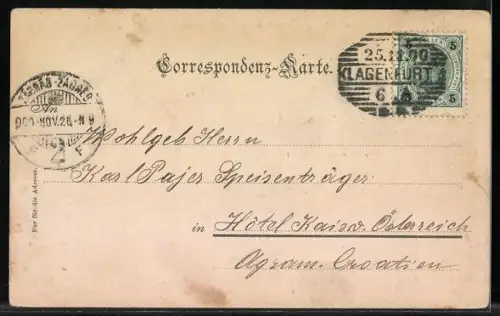 Correspondenz-Karte.
5 5
25.11.00
KLAGENFURT 1
6
5 5
ZAGREB
900 NOV. 26 - N 9
2 F
Wohlgeb Herrn
Karl Pajer Speisenträger
in Hôtel Kais. v. Österreich
Agram. Croatien
Nur für die Adresse.